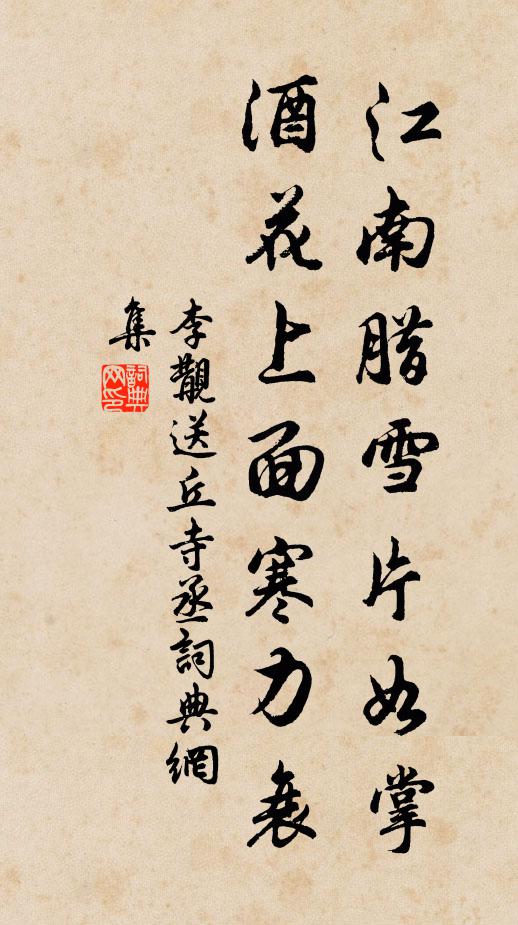 江南腊雪片如掌
酒花上面寒力衰
李觀送丘寺丞詞典網
集
詞典
网印